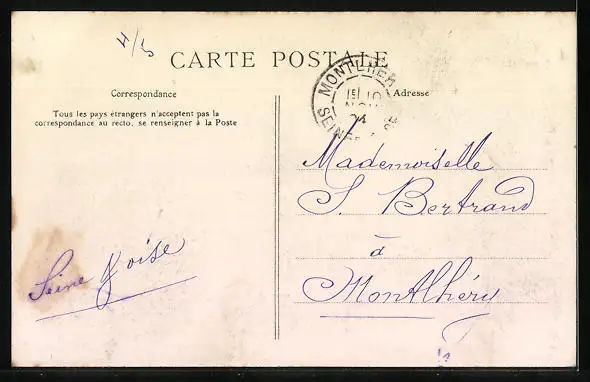 4/5
CARTE POSTALE
MONTLHERY
1E 10
NOV
SEINE
Correspondance
Adresse
Tous les pays étrangers n'acceptent pas la
correspondance au recto, se renseigner à la Poste
Mademoiselle
S. Bertrand
à
Montlhéry
Seine & oise